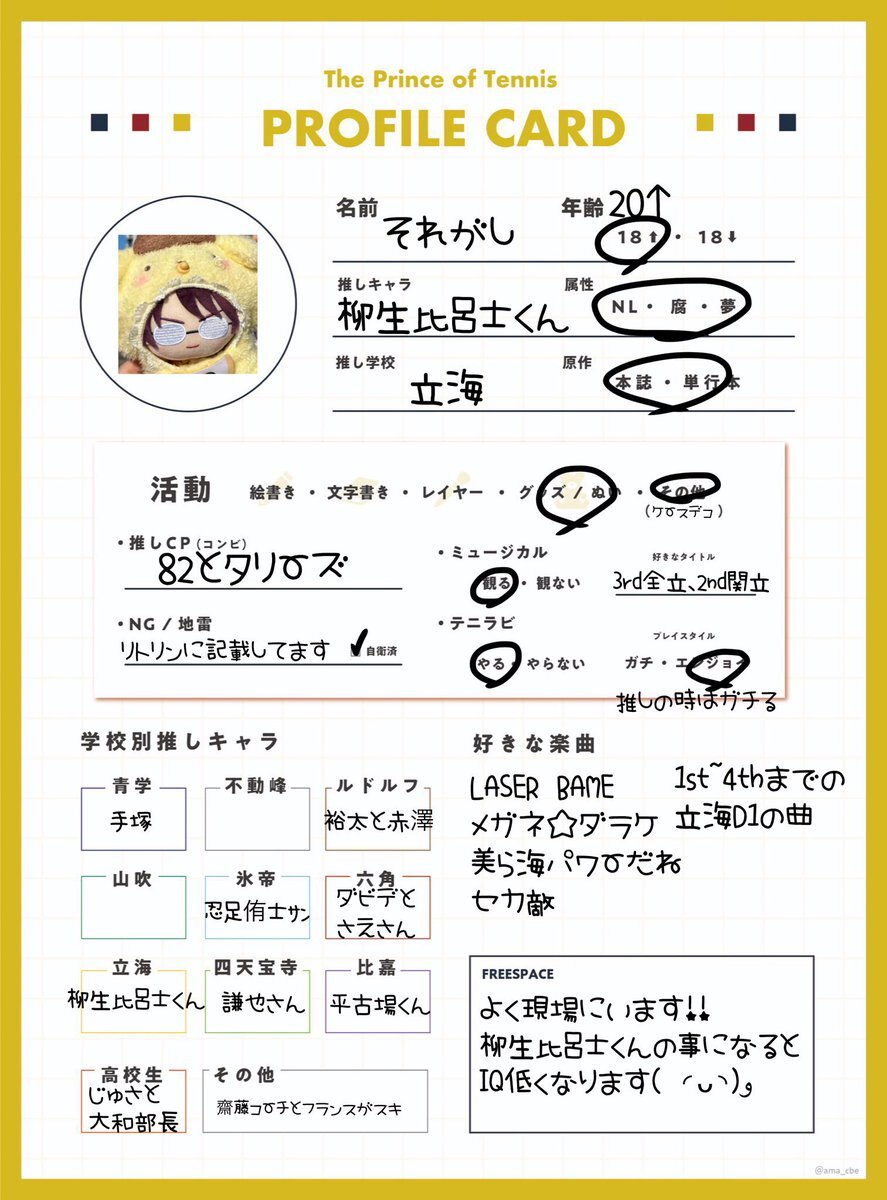 The Prince of Tennis
PROFILE CARD
名前 それがし
年齢 20↑
18⬆・18⬇
推しキャラ 柳生比呂士くん
属性 NL・腐・夢
推し学校 立海
原作 本誌・単行本
活動 絵書き・文字書き・レイヤー・グッズ/ぬい・その他
(ケースデコ)
・推しCP(コンビ)
82とダリーズ
・ミュージカル
観る・観ない
好きなタイトル
3rd全立、2nd関立
・NG/地雷
リトリンに記載してます ✓自衛済
・テニラビ
やる・やらない
プレイスタイル
ガチ・エンジョイ
推しの時はガチる
学校別推しキャラ
青学
手塚
不動峰
ルドルフ
裕太と赤澤
山吹
氷帝
忍足侑士サン
六角
ダビデと
さえさん
立海
柳生比呂士くん
四天宝寺
謙也さん
比嘉
平古場くん
高校生
じゅさと
大和部長
その他
齋藤コーチとフランスがスキ
好きな楽曲
LASER BAME
メガネ☆ダラケ
美ら海パワーだね
セカ敵
1st~4thまでの
立海D1の曲
FREESPACE
よく現場にいます!!
柳生比呂士くんの事になると
IQ低くなります( ◜ᴗ◝)و
@ama_cbe